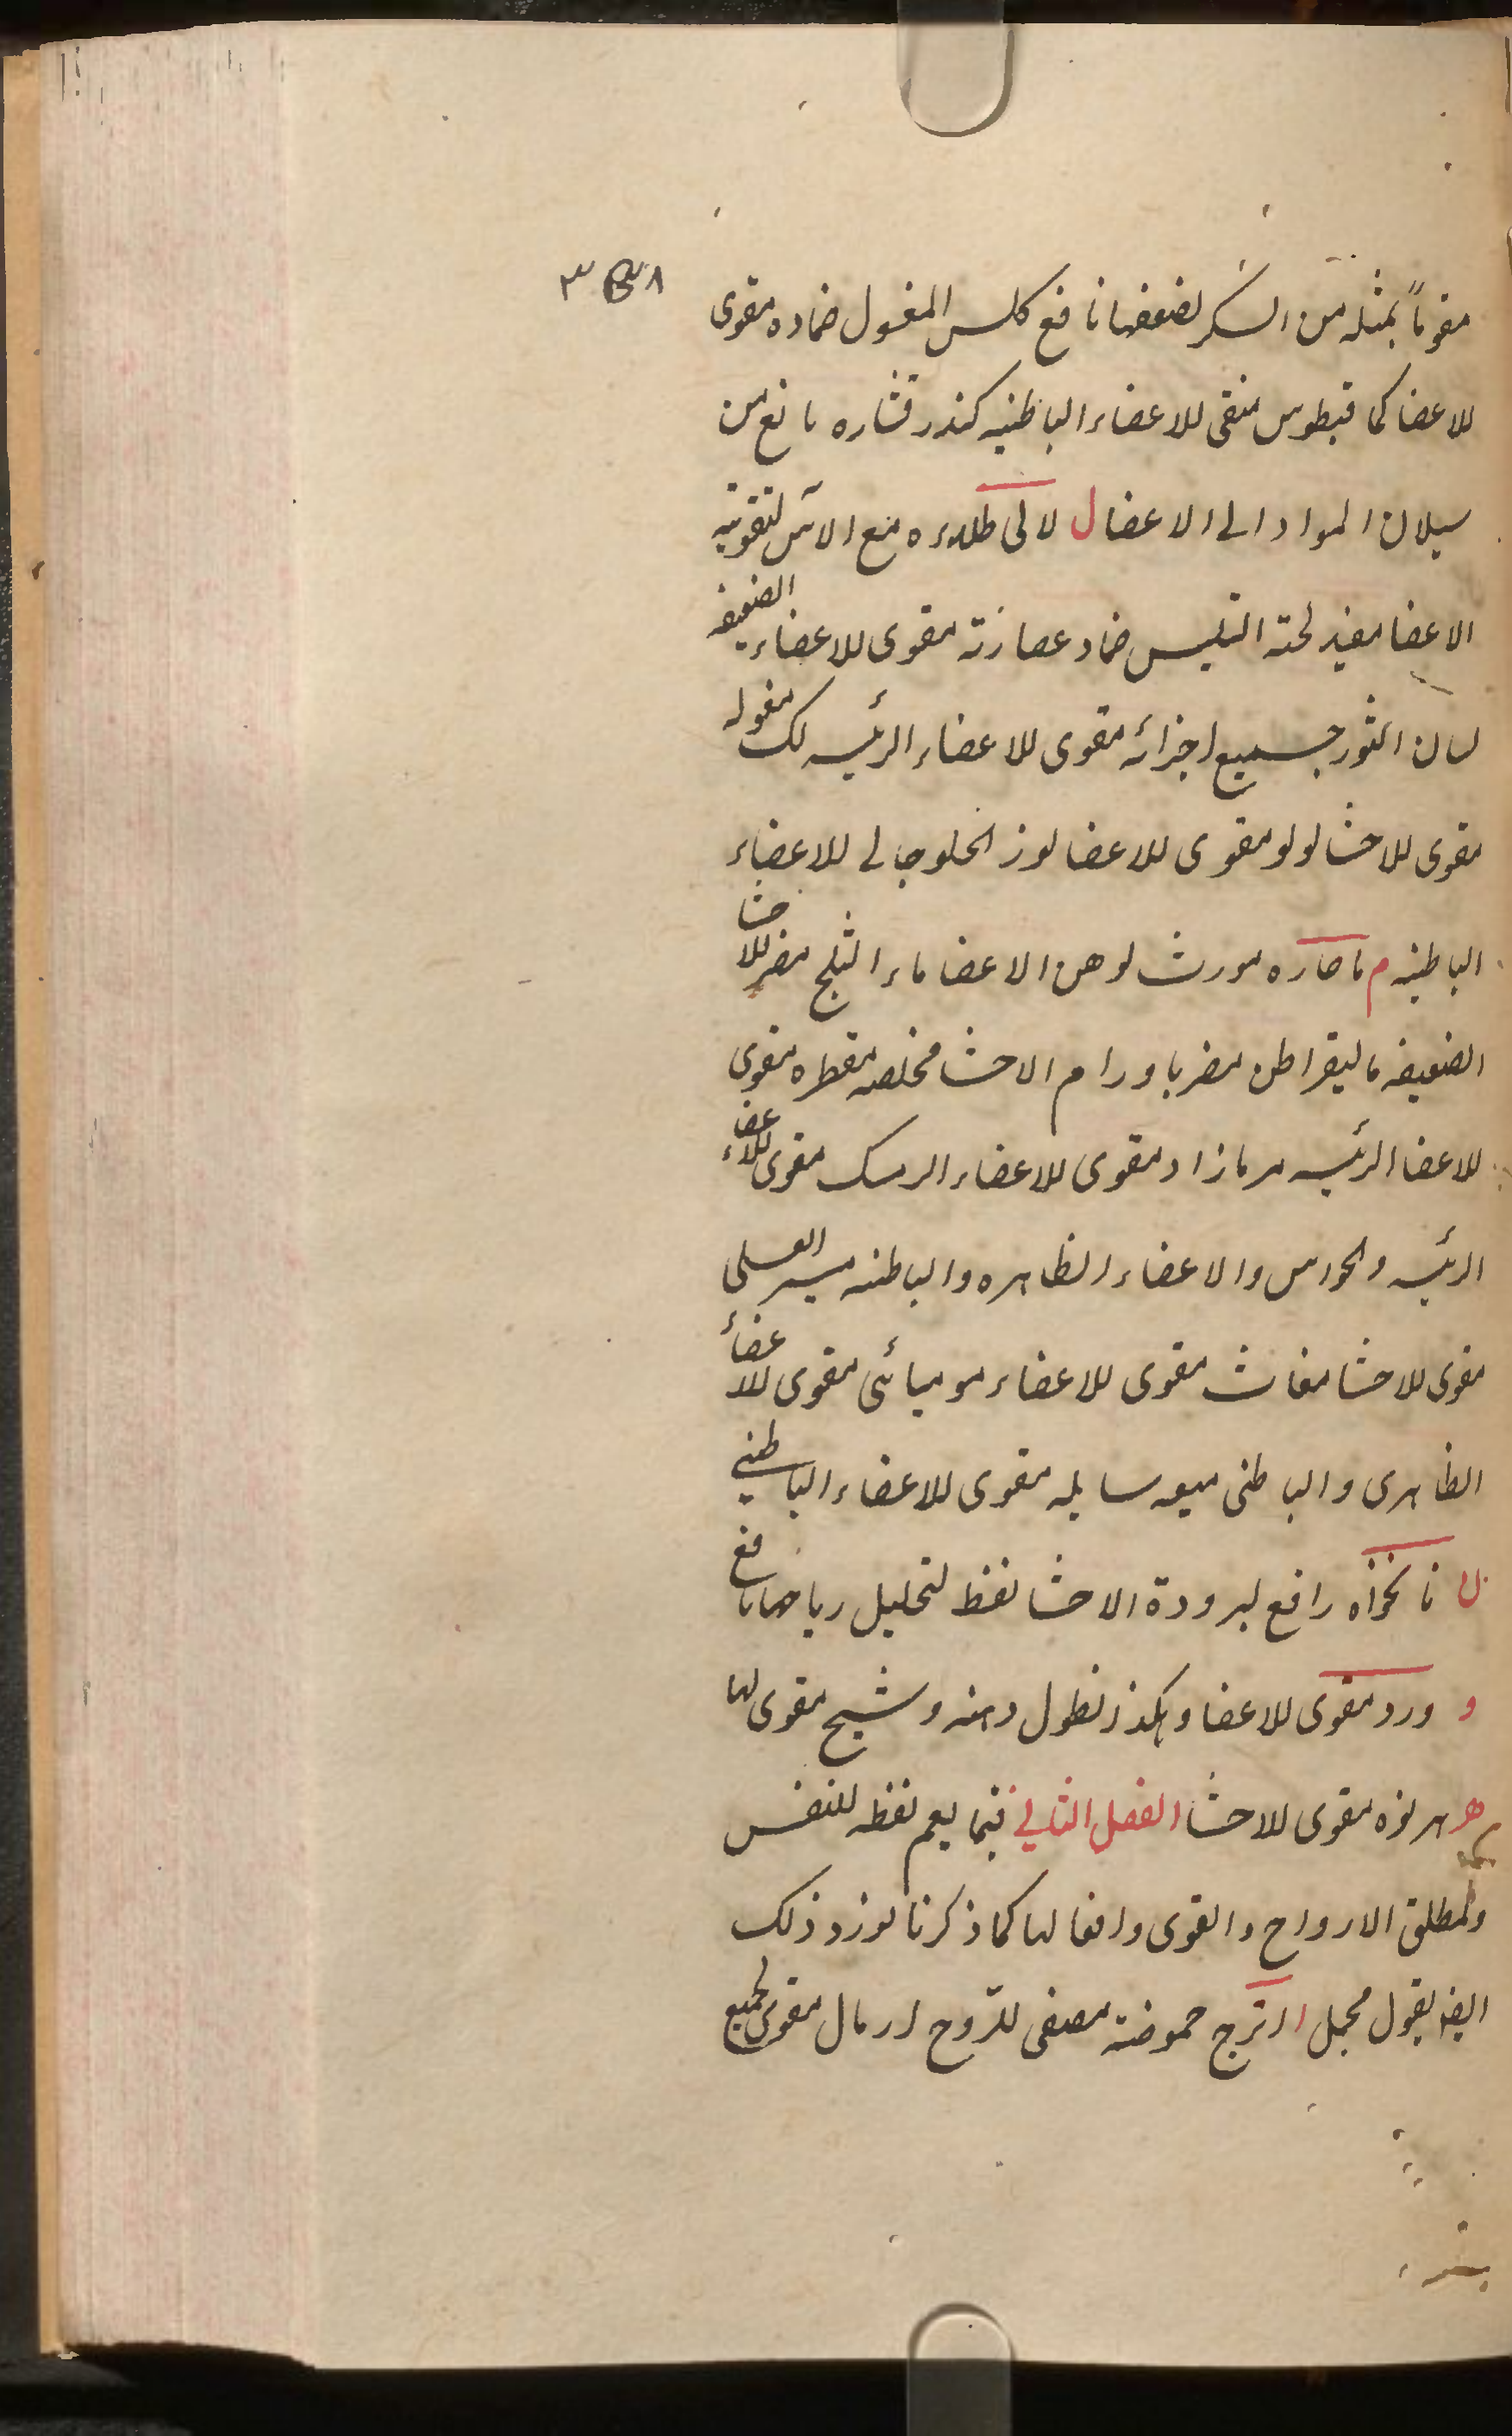 مقوماً بمثله من السكر لضعفها نافع كلس المغسول ضماده مقوى
للاعضا كما فيطوس منقى للاعضاء الباطنيه كندر قشاره مانع من
سيلان المواد الى الاعضا ل لالى طلاءه مع الآس لتقوية
الاعضا مفيد لحية التيس ضماد عصارته مقوى للاعضاء الضعيفه
لسان الثور جميع اجزائه مقوى للاعضاء الرئيسه لك مغسوله
مقوى للاحشا لولو مقوى للاعضا لوز الحلو جالى للاعضاء
الباطنيه م ما حاره مورث لوهن الاعضا ماء الثلج مضر للاحشا
الضعيفه ماليقراطن مضر باورام الاحشا مخلصه مقطره مقوى
للاعضا الرئيسه مرمازاد مقوى للاعضاء الرئيسه مسك مقوى للاعضاء
الرئيسه والحواس والاعضاء الظاهره والباطنه العسلى
مقوى للاحشا مغاث مقوى للاعضاء موميائى مقوى للاعضاء
الظاهرى والباطنى ميعه سايله مقوى للاعضاء الباطنى
ن نانخواه رافع لبرودة الاحشا نفط لتحليل رياحها نافع
و ورد مقوى للاعضا وهكذا نطول دهنه وشيح مقوى لها
هـ هرنوه مقوى للاحشا الفصل الثانى فيما يعم نفعه للنفس
ولمطلق الارواح والقوى وافعالها كما ذكرنا نورد ذلك
ايضا بقول مجمل ا اترج حموضته مصفى للرّوح ارمال مقوى لجميع